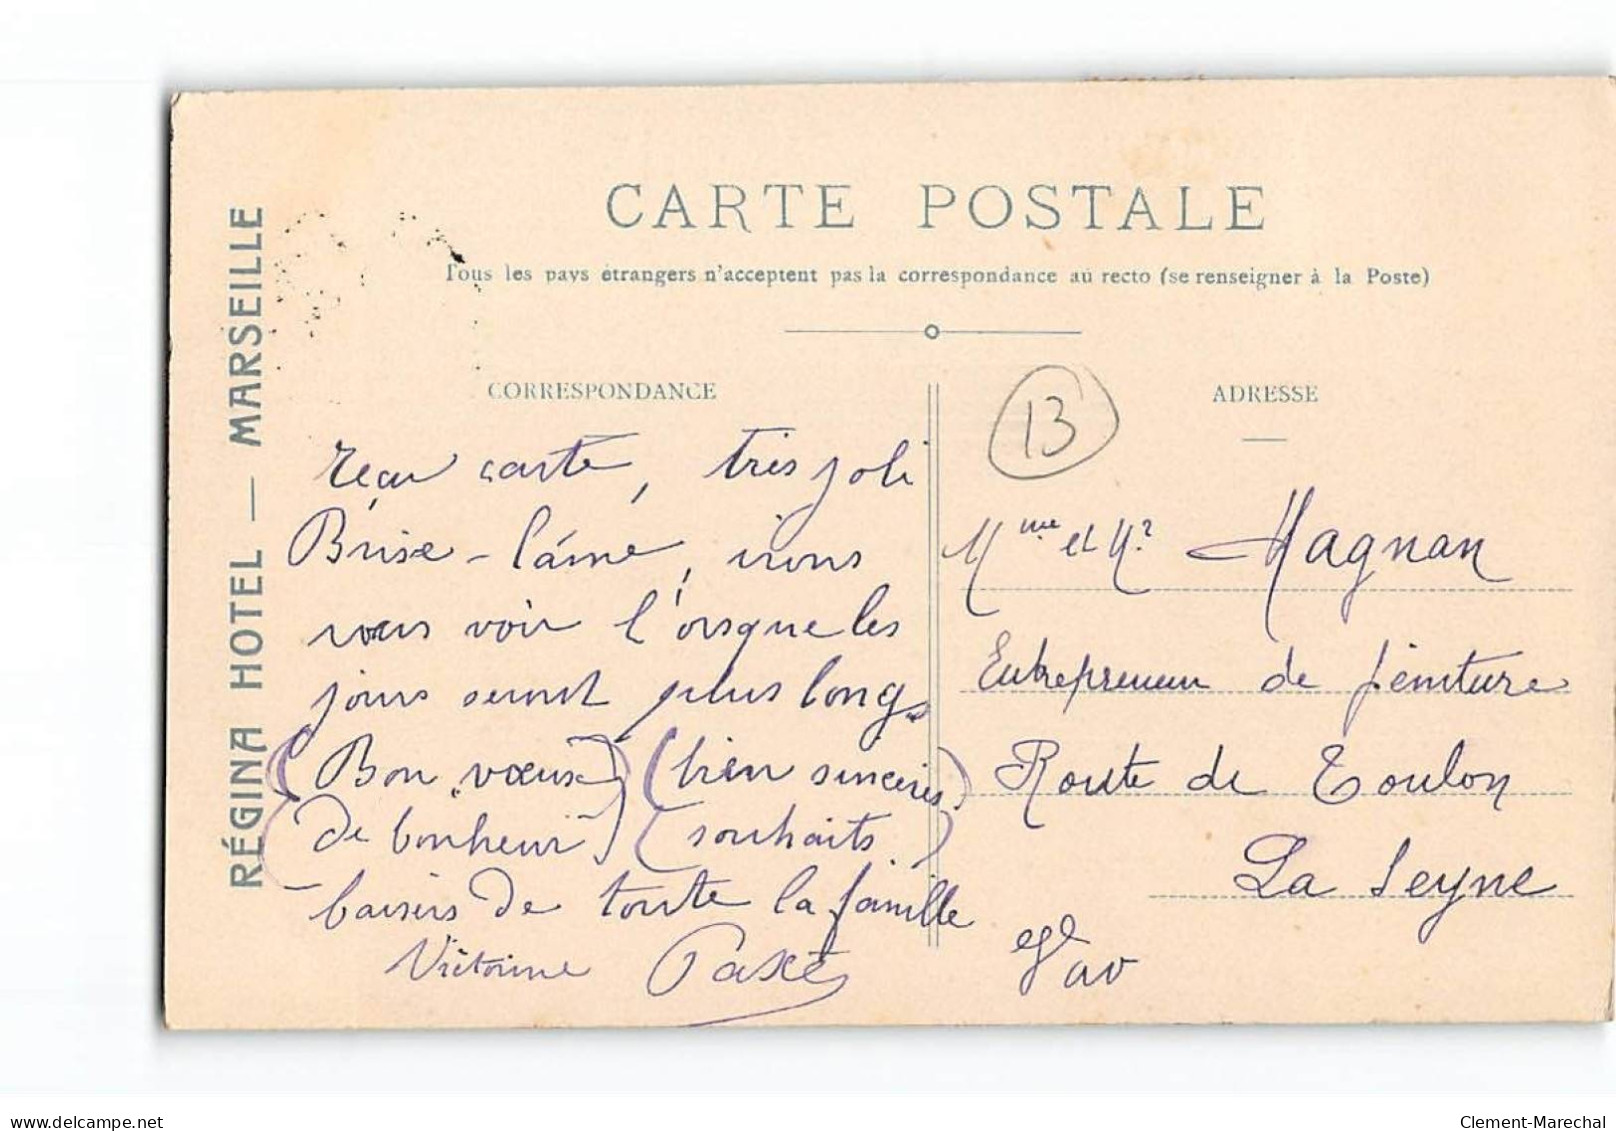 CARTE POSTALE
Tous les pays étrangers n'acceptent pas la correspondance au recto (se renseigner à la Poste)
RÉGINA HOTEL — MARSEILLE
CORRESPONDANCE
reçu carte, très joli
Brise-lame, irons
vous voir l'orsque les
jours seront plus longs
(Bon vœux) (bien sincères)
(de bonheur) (souhaits)
baisers de toute la famille
Victorine
ADRESSE
13
Mme et Mr Magnan
Entrepreneur de peinture
Route de Toulon
La Seyne
Var
delcampe.net
Clement-Marechal